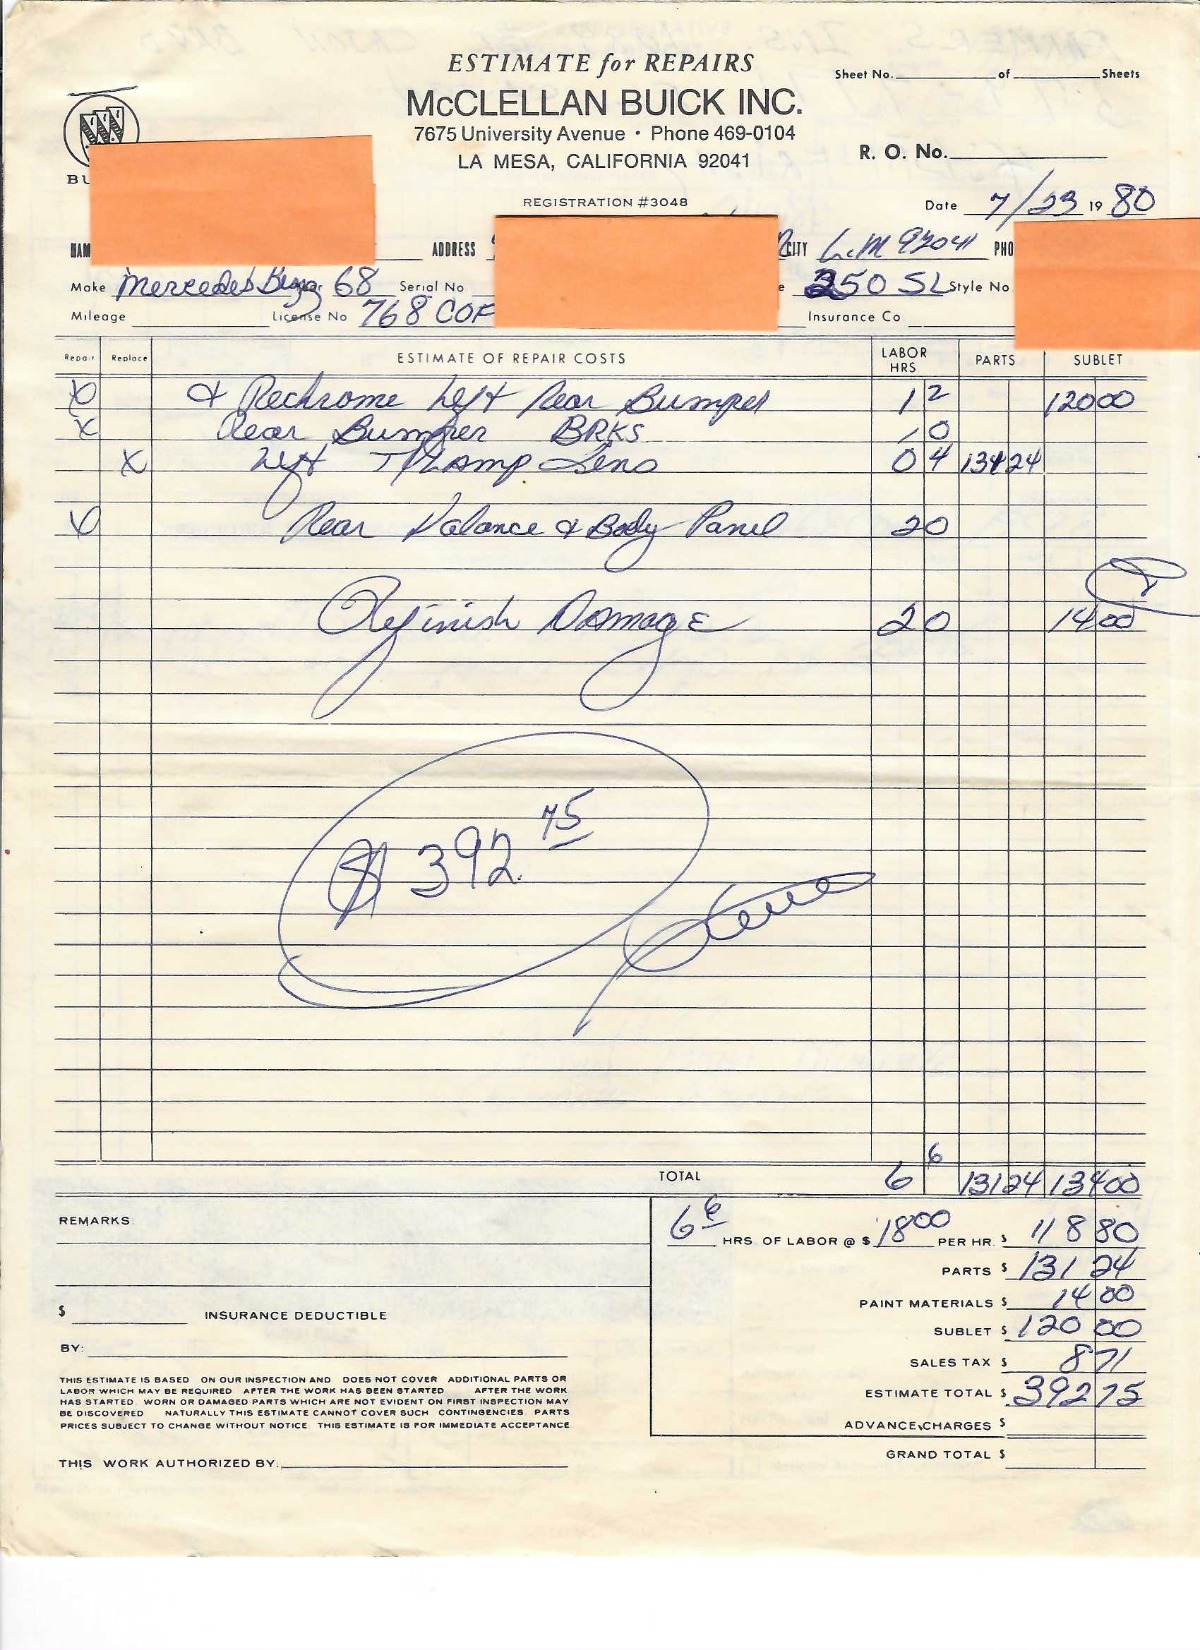 ESTIMATE for REPAIRS
Sheet No. of Sheets
McCLELLAN BUICK INC.
7675 University Avenue • Phone 469-0104
LA MESA, CALIFORNIA 92041
R. O. No.
BU
REGISTRATION #3048
Date 7/23 19 80
NAM ADDRESS CITY L.M 92041 PHO
Make Mercedes Benz 68 Serial No 250 SL Style No
Mileage License No 768 COF Insurance Co
Repair Replace ESTIMATE OF REPAIR COSTS LABOR HRS PARTS SUBLET
X & Rechrome Left Rear Bumper 1 2 120 00
X Rear Bumper BRKS 1 0
X Left T/Lamp Lens 0 4 131 24
Rear Valance & Body Panel 2 0
Refinish Damage 2 0 14 00
$ 392.75
TOTAL 6 6 131 24 134 00
REMARKS:
6 6 HRS. OF LABOR @ $ 18 00 PER HR. $ 118 80
PARTS $ 131 24
PAINT MATERIALS $ 14 00
$ INSURANCE DEDUCTIBLE
SUBLET $ 120 00
BY:
SALES TAX $ 8 71
ESTIMATE TOTAL $ 392 75
ADVANCE CHARGES $
GRAND TOTAL $
THIS ESTIMATE IS BASED ON OUR INSPECTION AND DOES NOT COVER ADDITIONAL PARTS OR
LABOR WHICH MAY BE REQUIRED AFTER THE WORK HAS BEEN STARTED AFTER THE WORK
HAS STARTED WORN OR DAMAGED PARTS WHICH ARE NOT EVIDENT ON FIRST INSPECTION MAY
BE DISCOVERED NATURALLY THIS ESTIMATE CANNOT COVER SUCH CONTINGENCIES PARTS
PRICES SUBJECT TO CHANGE WITHOUT NOTICE THIS ESTIMATE IS FOR IMMEDIATE ACCEPTANCE
THIS WORK AUTHORIZED BY: